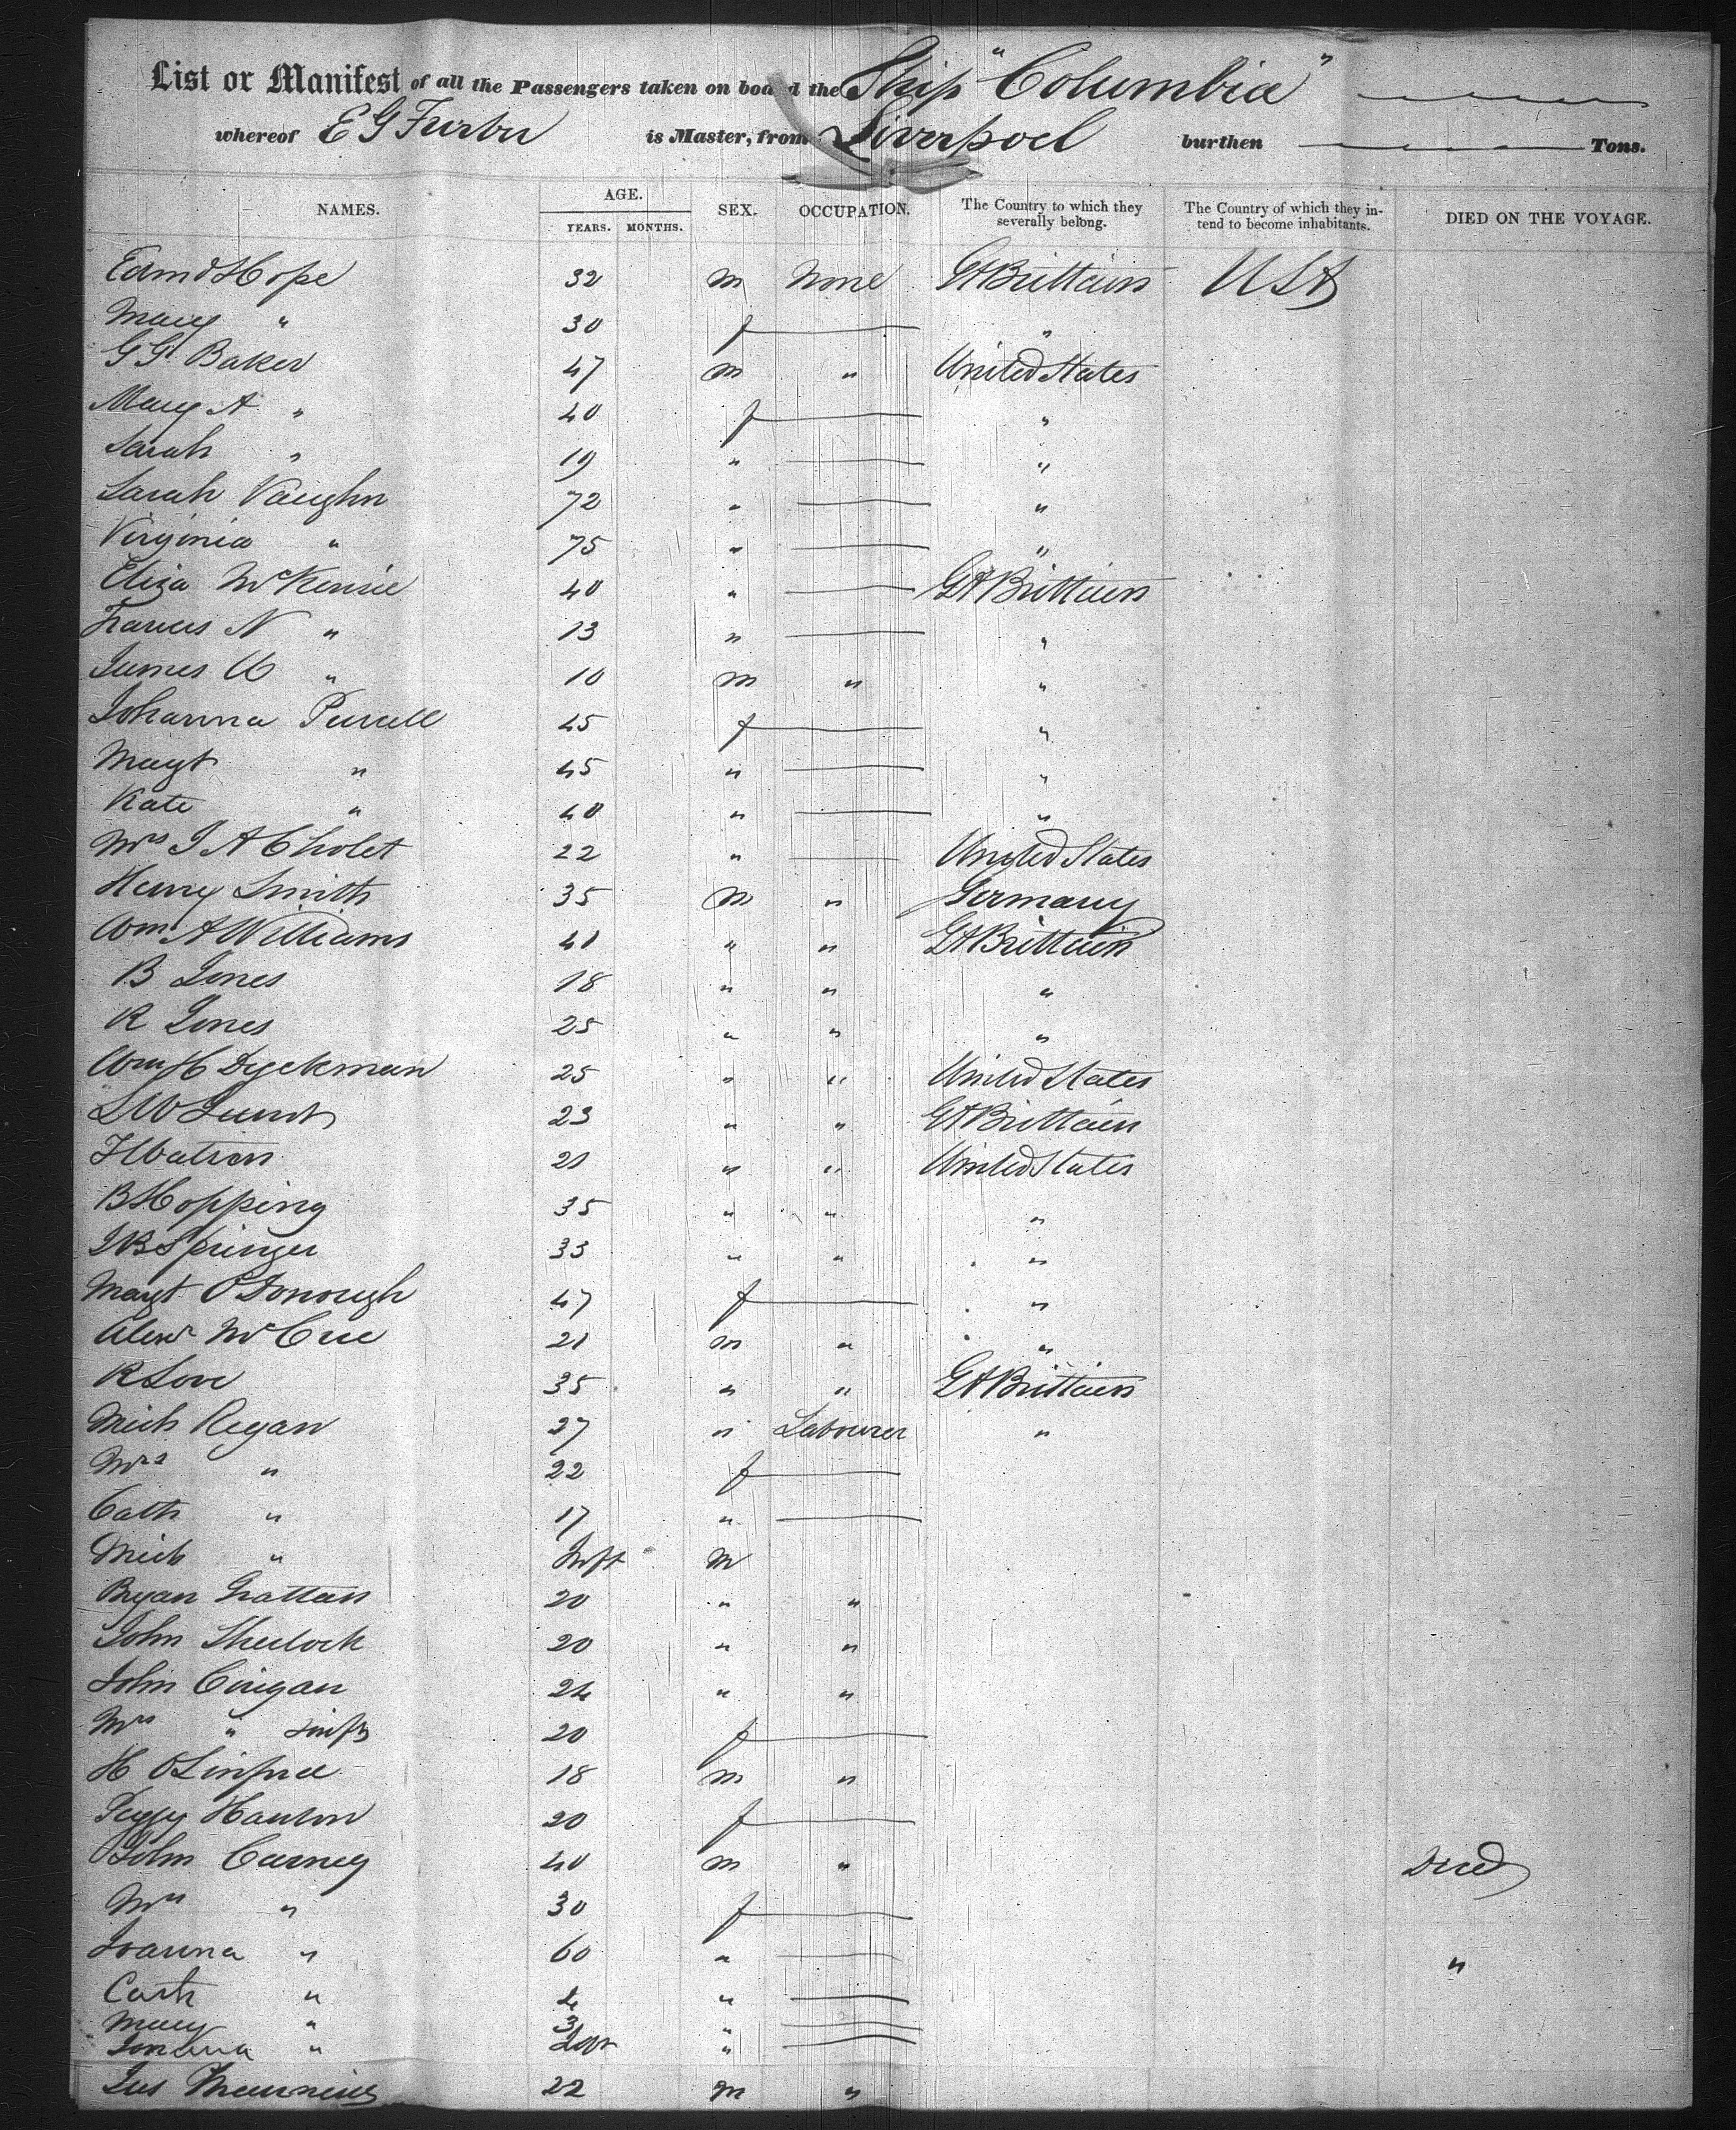 List or Manifest of all the Passengers taken on board the Ship "Columbia"
whereof E G Furber is Master, from Liverpool burthen Tons.
NAMES. AGE. SEX. OCCUPATION. The Country to which they severally belong. The Country of which they intend to become inhabitants. DIED ON THE VOYAGE.
YEARS. MONTHS.
Edmd Hope 32 m None Gt Brittain USA
Mary " 30 f "
G G Baker 47 m " United States
Mary A " 40 f "
Sarah " 19 " "
Sarah Vaughn 72 " "
Virginia " 75 " "
Eliza McKensie 40 " Gt Brittain
Frances N " 13 " "
James " 10 m " "
Johanna Purcell 45 f "
Magt " 45 " "
Kate " 40 " "
Mrs J A Cholet 22 " United States
Henry Smith 35 m " Germany
Wm A Williams 41 " " Gt Brittain
B Jones 18 " " "
R Jones 25 " " "
Wm H Dyckman 25 " " United States
L W 23 " " Gt Brittain
J Watson 21 " " United States
B Hopping 35 " " "
J B Springer 33 " " "
Magt O Donough 47 f "
Alexr McCrie 21 m " "
R Love 35 " " Gt Brittain
Mich Regan 27 " Labourer "
Mrs " 22 f
Cath " 17 "
Mich " Inft m
Bryan Grattan 20 " "
John Sherlock 20 " "
John Corigan 24 " "
Mrs " 20 f
H 18 m "
Peggy Hanlon 20 f
John Carney 40 m " Died
Mrs " 30 f
Joanna " 60 " "
Cath " 4 "
Mary " 3 "
Johana " "
Jas Manning 22 m "